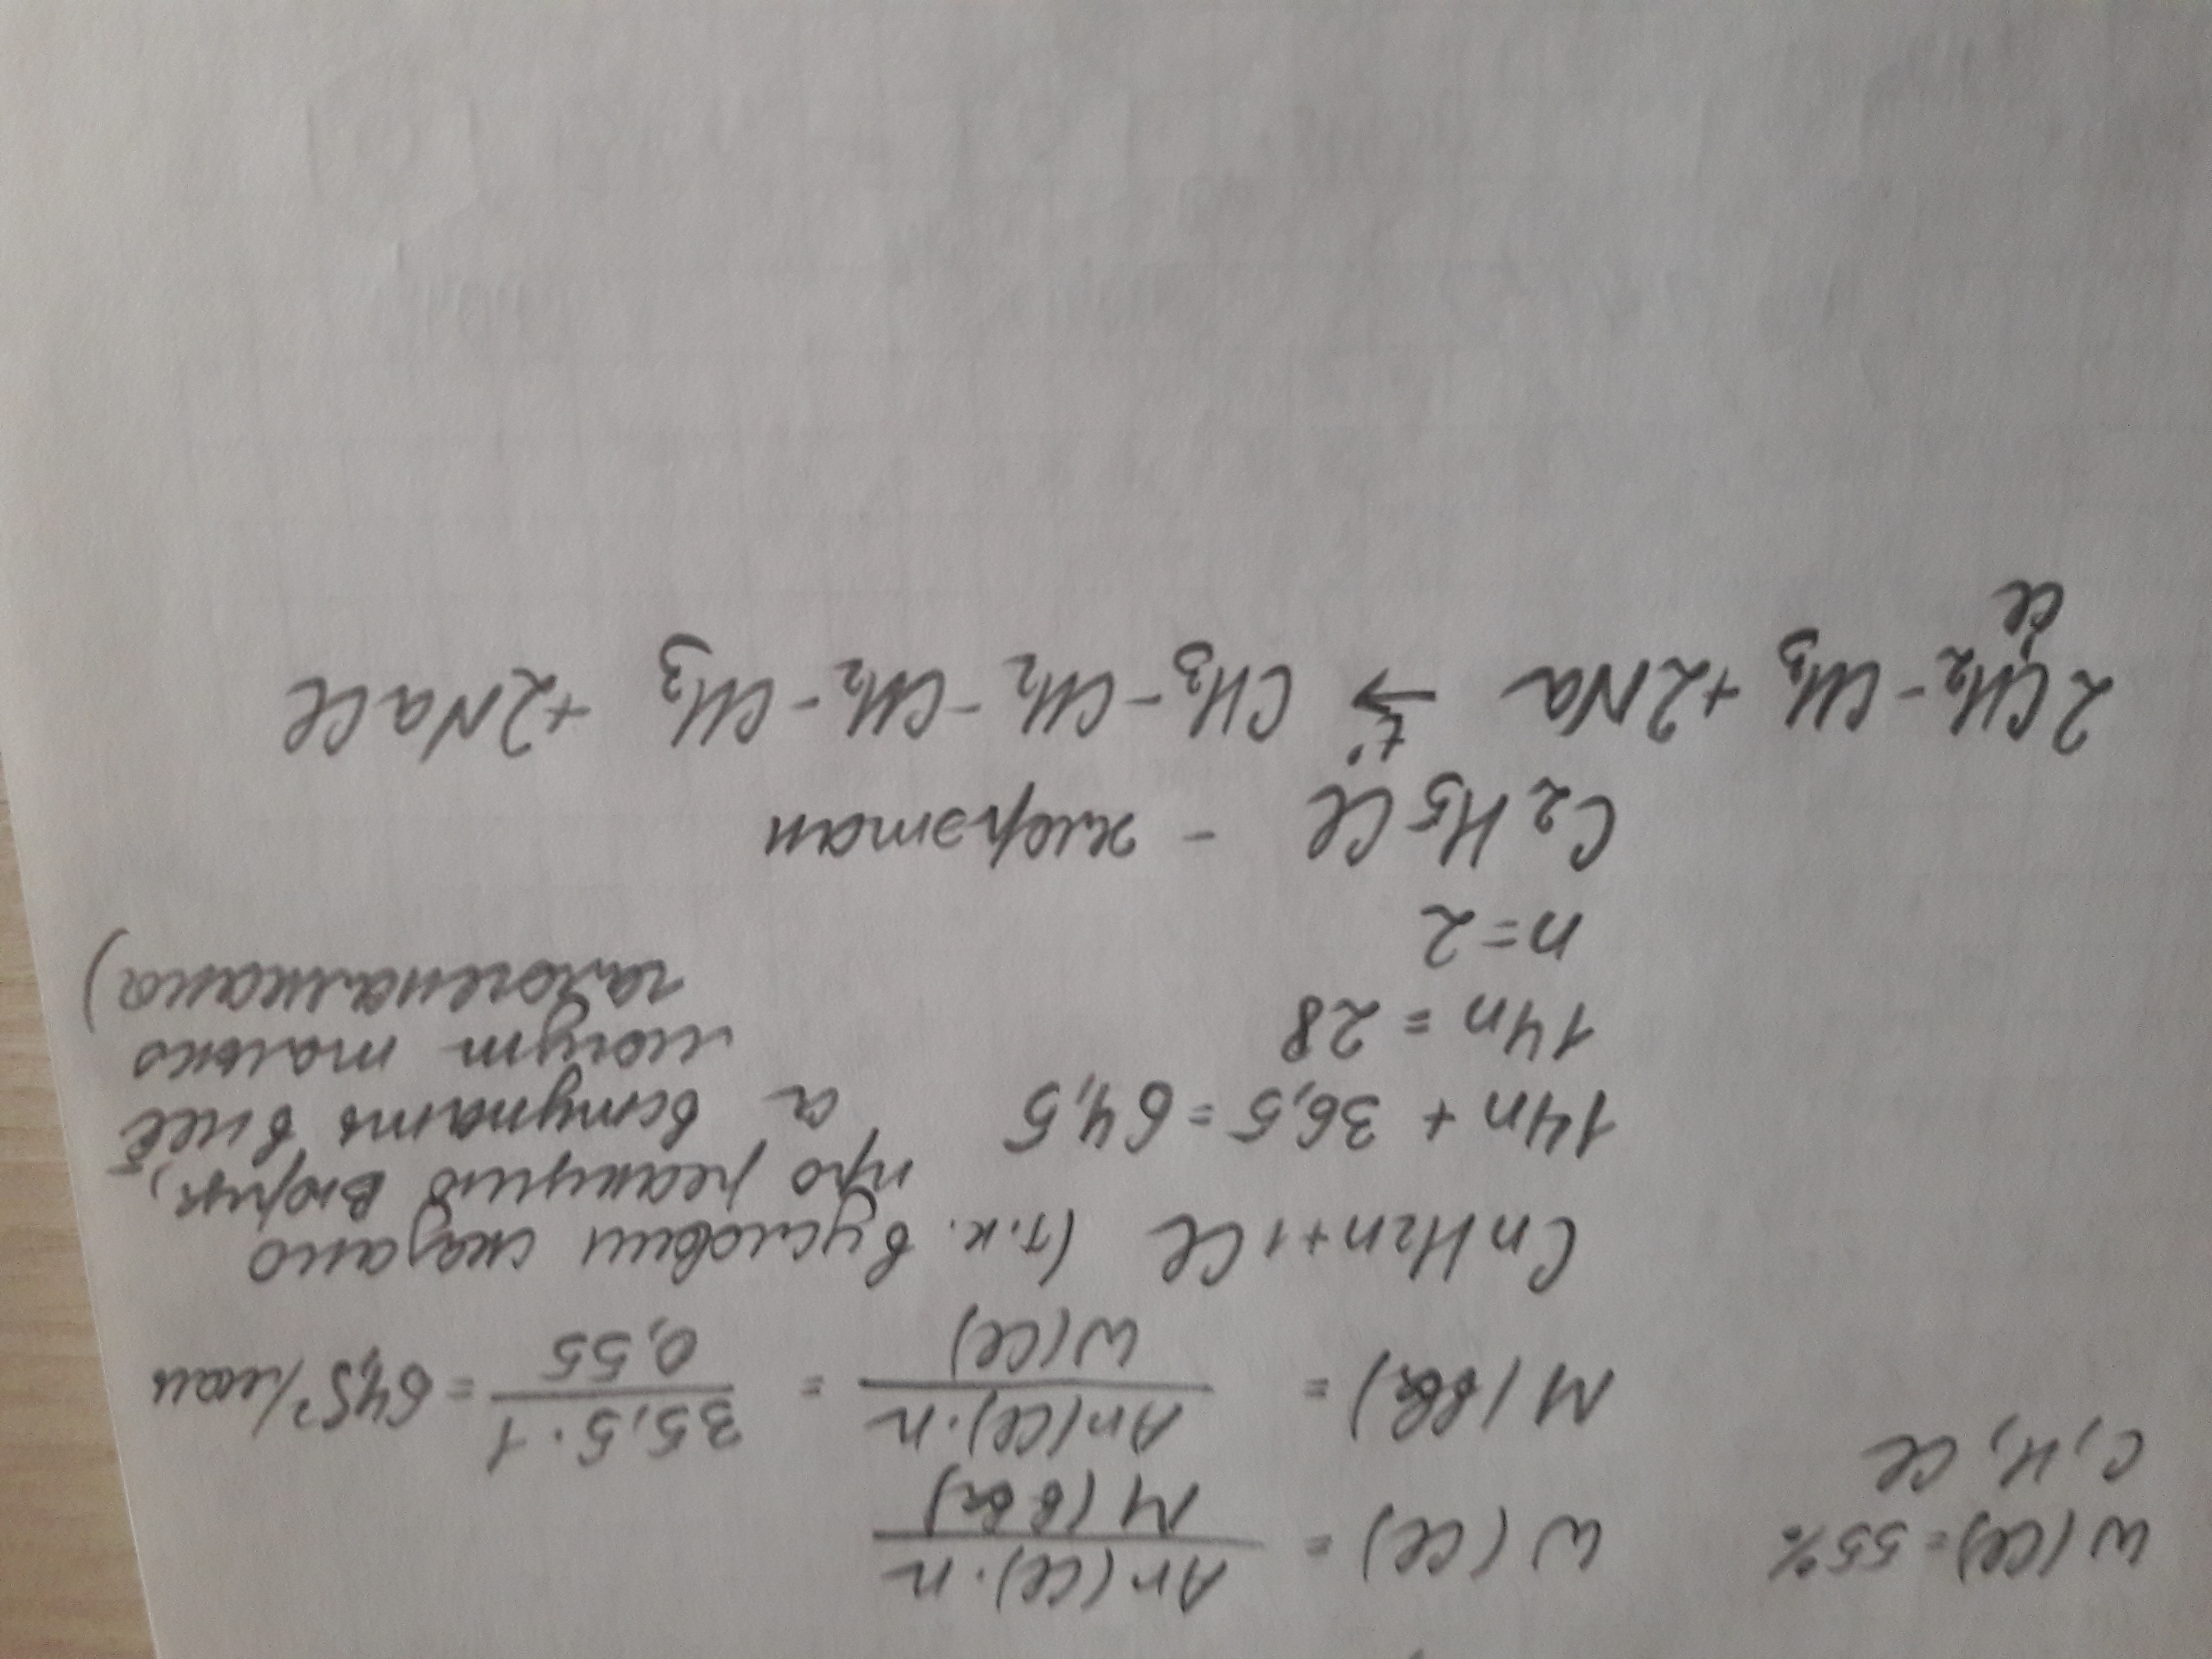 W(Cl) = 55%
C, H, Cl
W(Cl) = Ar(Cl)·n / M(вва)
M(вва) = Ar(Cl)·n / W(Cl) = 35,5·1 / 0,55 = 64,5 г/моль
CnH2n+1Cl (т.к. в условии сказано
про реакцию Вюрца,
а вступать в неё
могут только
галогеналканы)
14n + 36,5 = 64,5
14n = 28
n=2
C2H5Cl - хлорэтан
2CH2-CH3 + 2Na t° → CH3-CH2-CH2-CH3 + 2NaCl
Cl